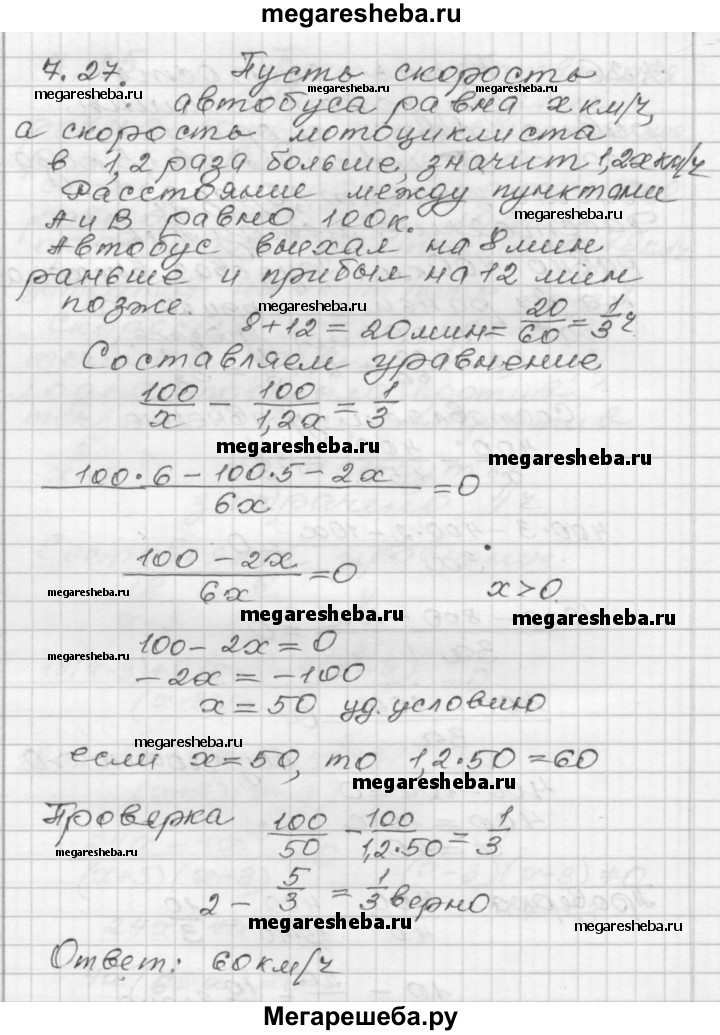 megaresheba.ru
7.27. Пусть скорость
megaresheba.ru megaresheba.ru
автобуса равна x км/ч,
а скорость мотоциклиста
в 1,2 раза больше, значит 1,2x км/ч
Расстояние между пунктами
megaresheba.ru
А и В равно 100к.
Автобус выехал на 8 мин
раньше и прибыл на 12 мин
позже. megaresheba.ru
8+12 = 20 мин = 20/60 = 1/3 ч.
Составляем уравнение
100/x - 100/1,2x = 1/3
megaresheba.ru megaresheba.ru
(100·6 - 100·5 - 2x)/6x = 0
(100 - 2x)/6x = 0 x > 0
megaresheba.ru megaresheba.ru megaresheba.ru
100 - 2x = 0
megaresheba.ru
-2x = -100
x = 50 уд. условию
megaresheba.ru
если x = 50, то 1,2·50 = 60
megaresheba.ru
Проверка 100/50 - 100/1,2·50 = 1/3
megaresheba.ru
2 - 5/3 = 1/3 верно
megaresheba.ru megaresheba.ru
Ответ: 60 км/ч
Мегарешеба.ру